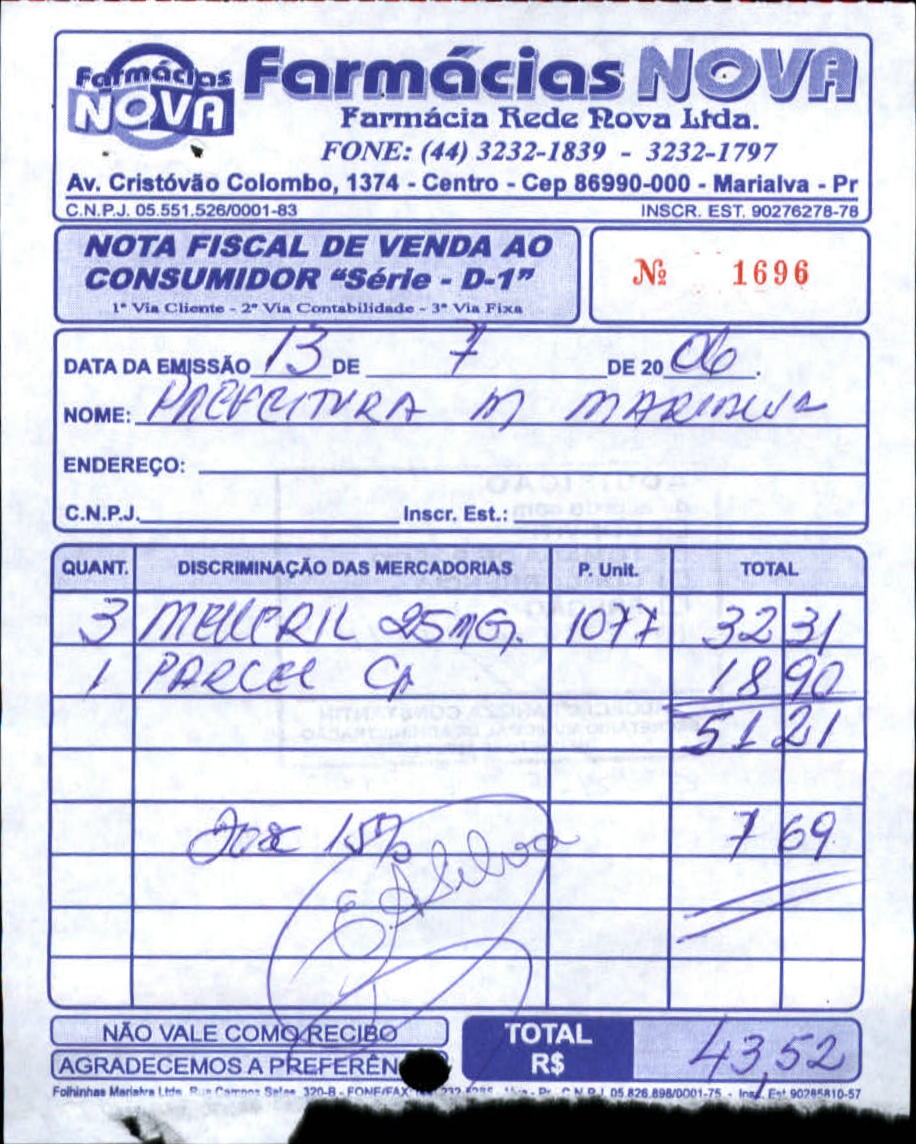 Farmácias NOVA
Farmácias NOVA
Farmácia Rede Nova Ltda.
FONE: (44) 3232-1839 - 3232-1797
Av. Cristóvão Colombo, 1374 - Centro - Cep 86990-000 - Marialva - Pr
C.N.P.J. 05.551.526/0001-83 INSCR. EST. 90276278-78
NOTA FISCAL DE VENDA AO
CONSUMIDOR “Série - D-1”
1ª Via Cliente - 2ª Via Contabilidade - 3ª Via Fixa
Nº 1696
DATA DA EMISSÃO 13 DE 7 DE 20 06.
NOME: PREFEITURA M MARIALVA
ENDEREÇO:
C.N.P.J. Inscr. Est.:
QUANT. DISCRIMINAÇÃO DAS MERCADORIAS P. Unit. TOTAL
3 MELLERIL 25MG. 1077 32 31
1 PARCEL Cp 18 90
51 21
15% 7 69
Silva
NÃO VALE COMO RECIBO
AGRADECEMOS A PREFERÊN
TOTAL
R$ 43,52
Folhinhas Marialva Ltda. Rua Campos Sales, 320-B - FONE/FAX 232-5285 - Pr - C.N.P.J. 05.826.898/0001-75 - Insc. Est. 90285810-57